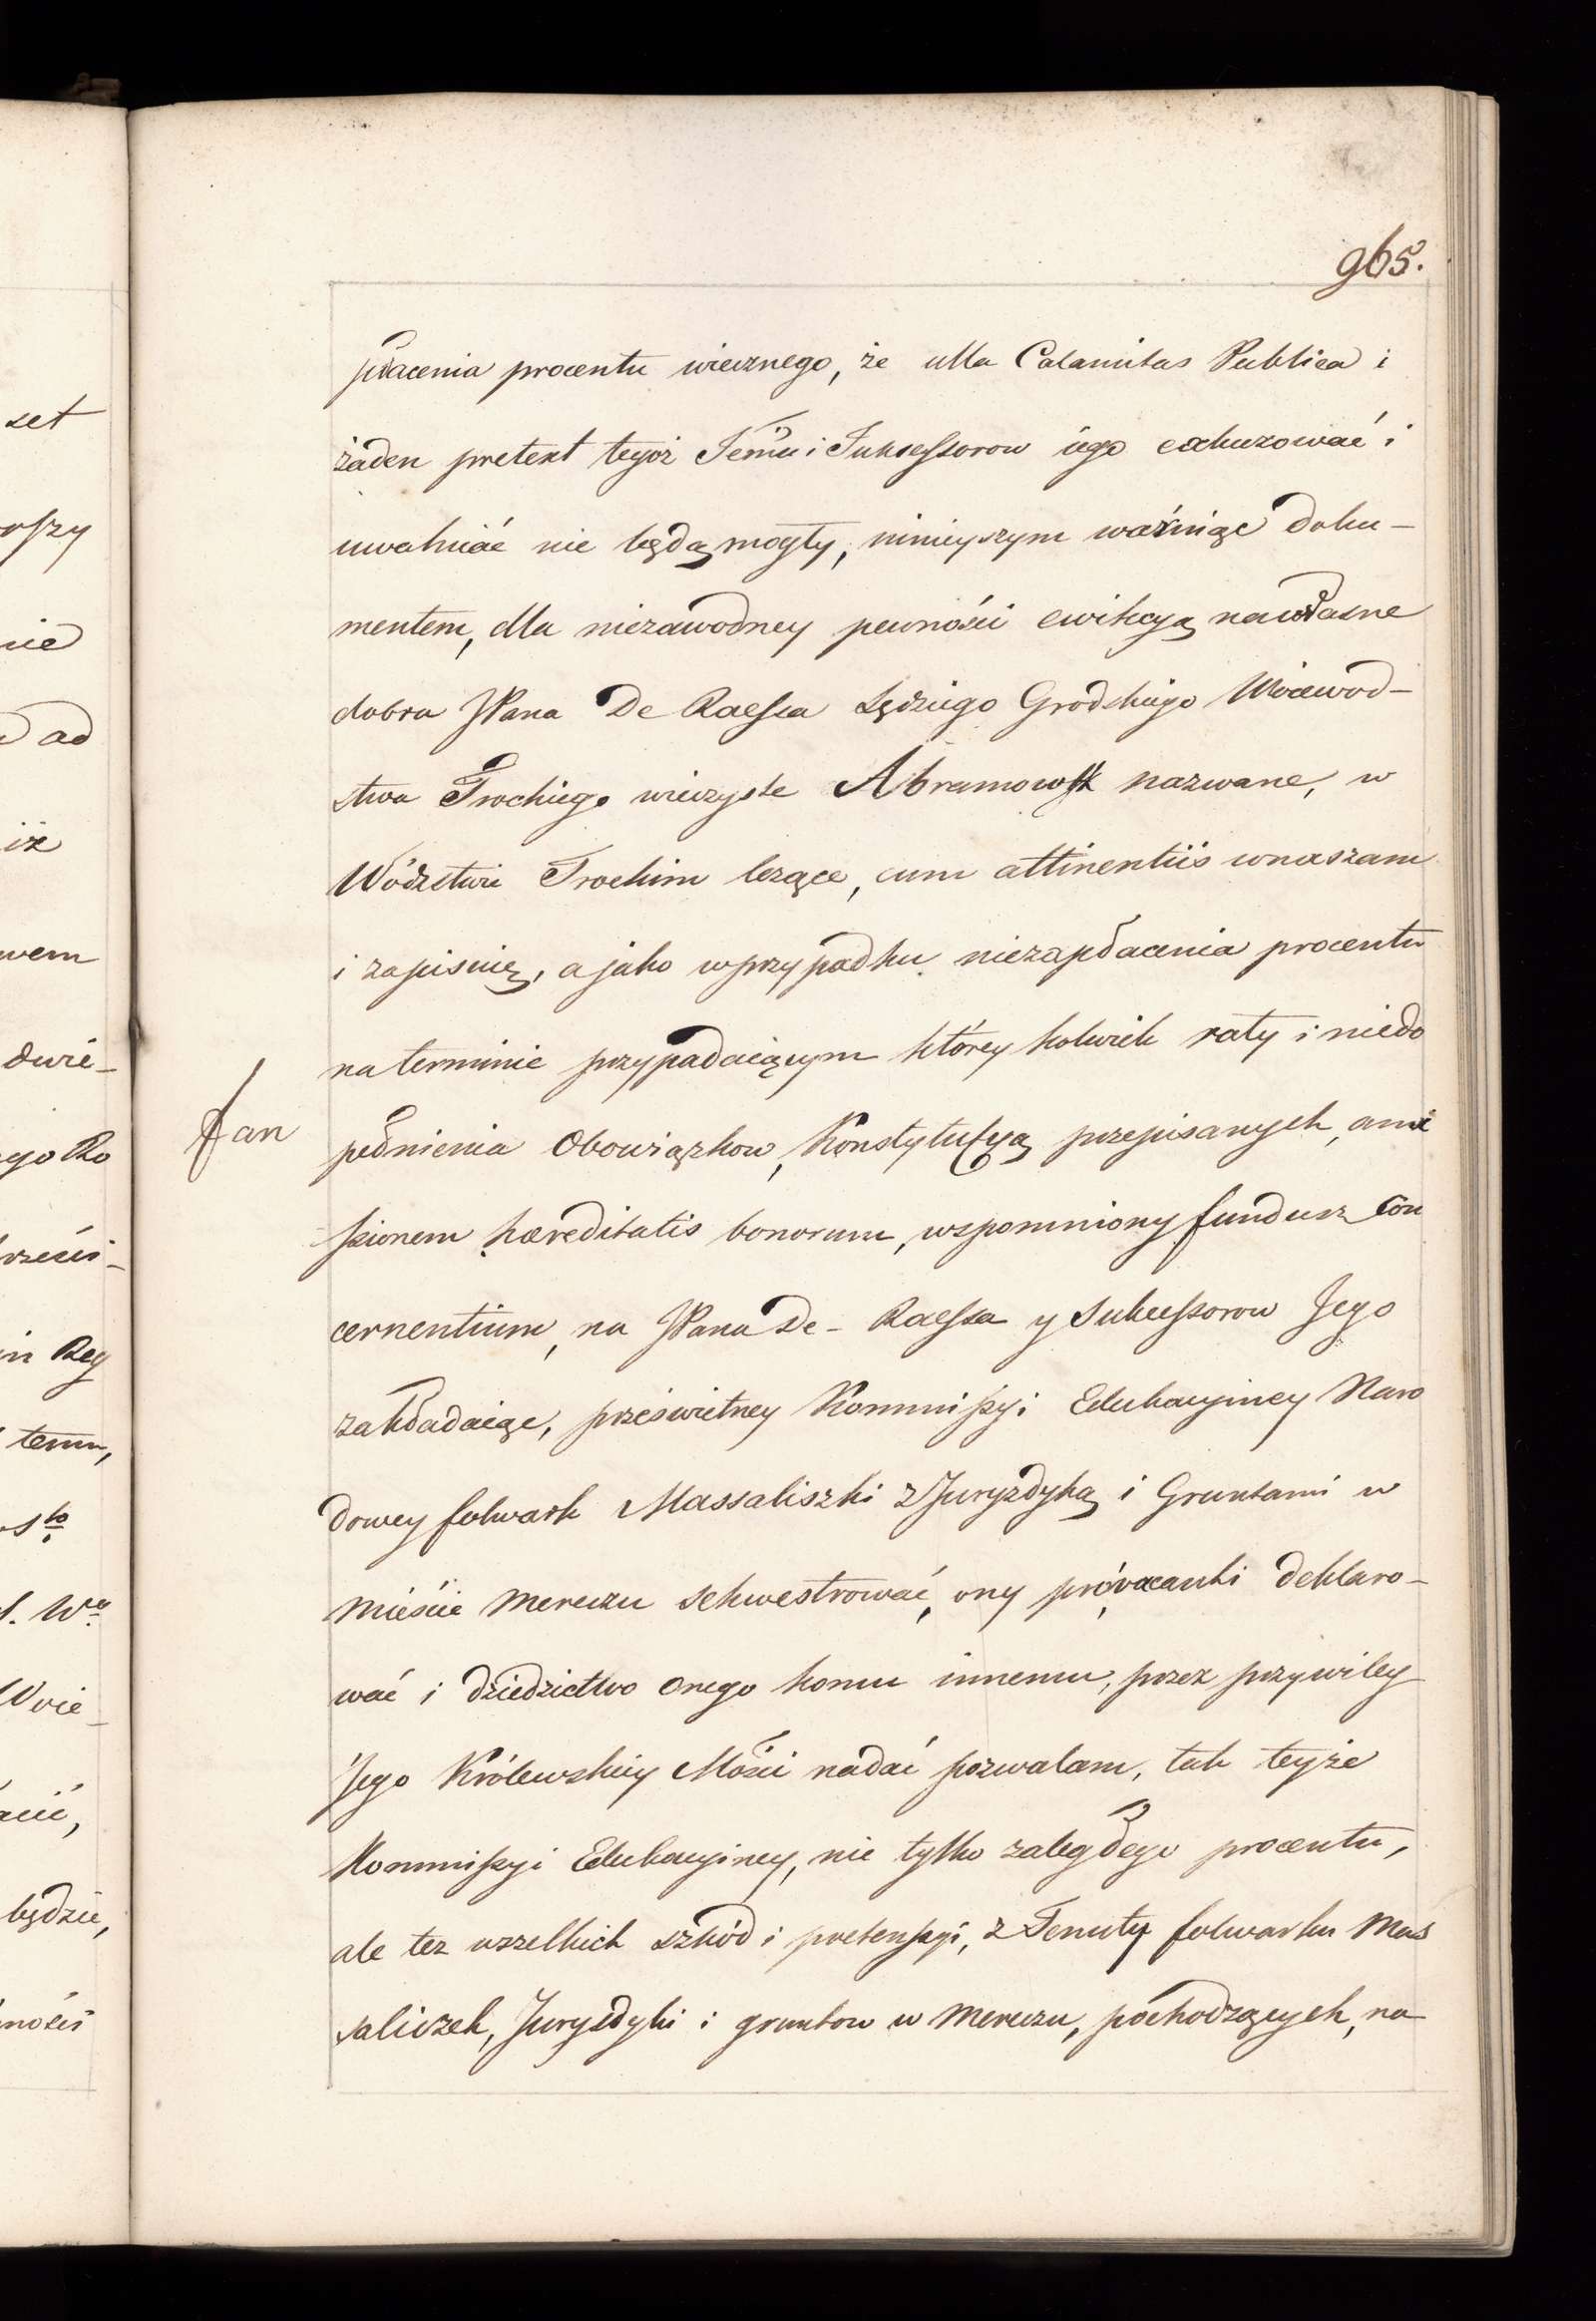 965.
płacenia procentu wiecznego, że ulla Calamitas Publica i
żaden pretext tegoż Jemu i Sukcessorow iego exkuzować i
uwalniać nie będą mogły, ninieyszym wazniąc doku-
mentem, dla niezawodney pewności ewikcyą na własne
dobra JPana De Raessa Sędziego Grodzkiego Woiewod-
stwa Trockiego wieczyste Abramowsk nazwane, w
Wództwie Trockim lezące, cum attinentiis wnaszam
i zapisuię, a jako w przypadku niezapłacenia procentu
na terminie przypadaiącym którey kolwiek raty i niedo
pełnienia Obowiązkow, Konstytucyą przepisanych, ami
ssionem hæreditatis bonorum, wspomniony fundusz Con
cernentium, na JPana De-Raessa y Sukcessorow Jego
zakładaiąc, prześwietney Kommissyi Edukacyiney Naro
dowey folwark Massaliszki z Juryzdyką i Gruntami w
mieście Mereczu sekwestrować, ony pro vacanti deklaro-
wać i dziedzictwo onego komu innemu, przez przywiley
Jego Królewskiey Mości nadać pozwalam, tak teyże
Kommissyi Edukacyiney, nie tylko zaległego procentu,
ale tez wszelkich szkód i pretensyi, z Tenuty folwarku Mas
saliszek, Juryzdyki i gruntow w Mereczu, pochodzących, na
Jan
set
nie
ad
iż
wem
dwie-
ego Ro
in Reg
temu,
Woie-
będzie,